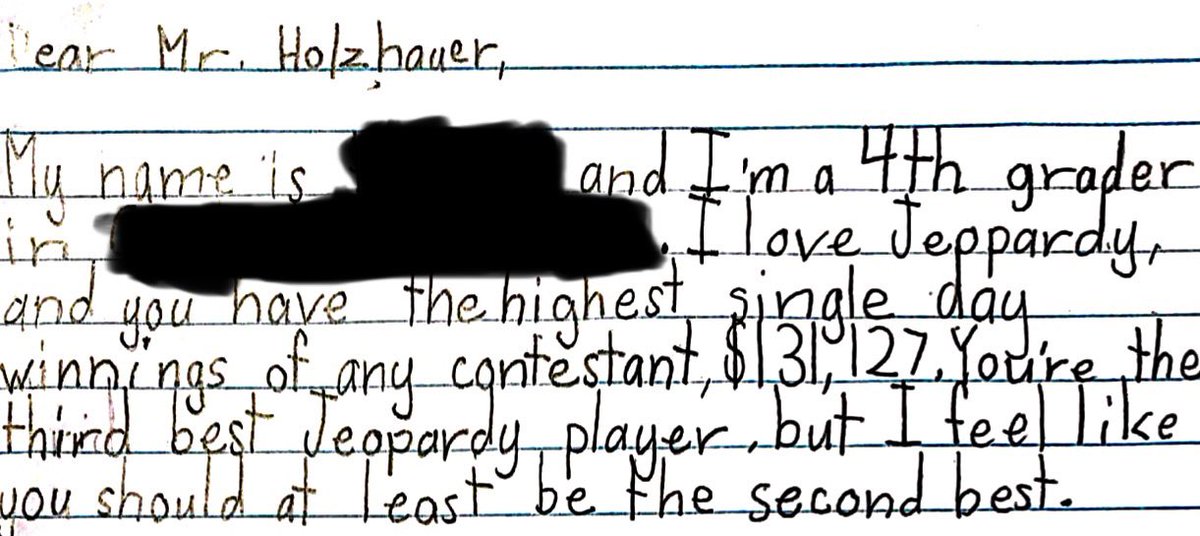 Dear Mr. Holzhauer,
My name is and I'm a 4th grader
in . I love Jeppardy,
and you have the highest single day
winnings of any contestant, $131,127. You're the
third best Jeopardy player, but I feel like
you should at least be the second best.